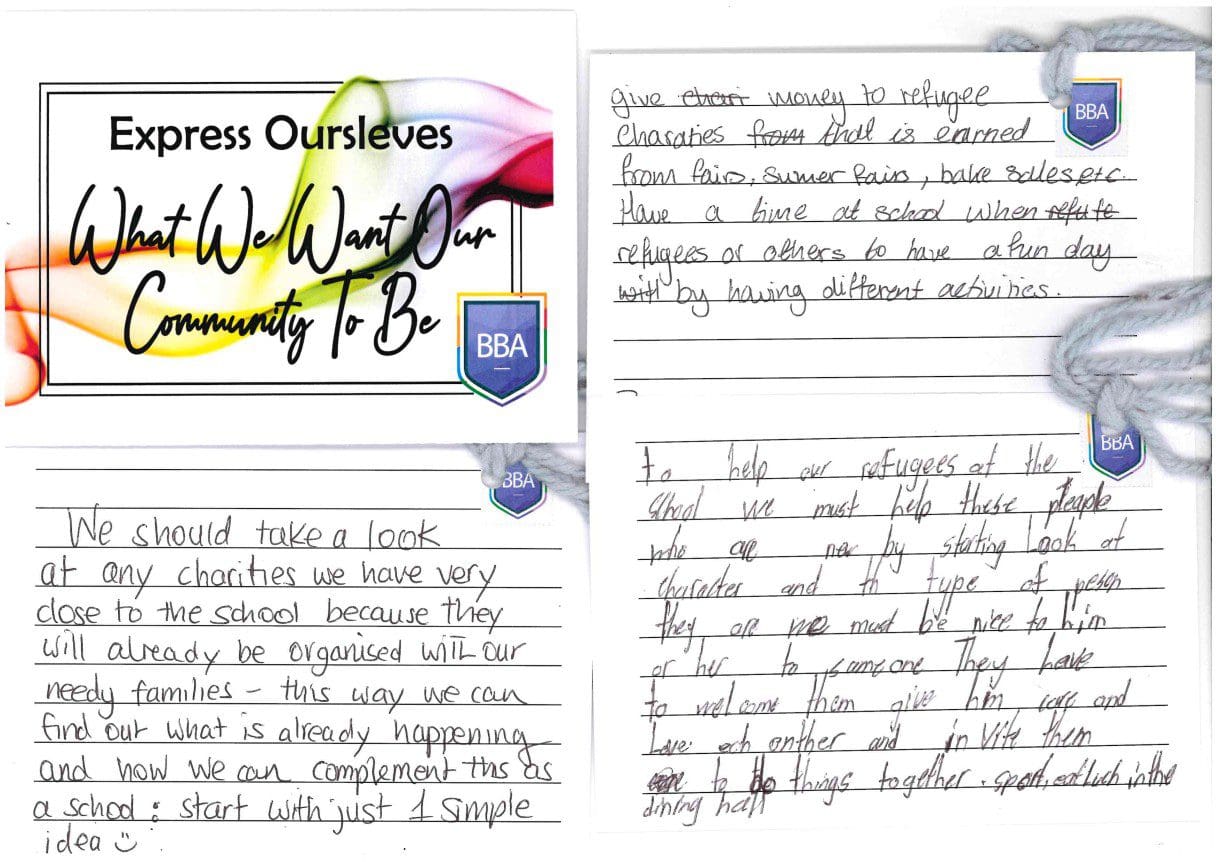 Express Oursleves
What We Want Our
Community To Be
BBA
We should take a look
at any charities we have very
close to the school because they
will already be organised with our
needy families – this way we can
find out what is already happening
and how we can complement this as
a school : start with just 1 simple
idea
BBA
give money to refugee
Charaties that is earned
from fairs, sumer fairs, bake sales etc.
Have a time at school when
refugees or others to have a fun day
by having different activities.
BBA
to help our refugees at the
school we must help these pleaple
who are new by starting Look at
character and th type of peson
they are must be nice to him
or her to someone They have
to welcome them give him care and
Love each onther and in Vite them
to do things together. sport, eat luch in the
dining hall
BBA